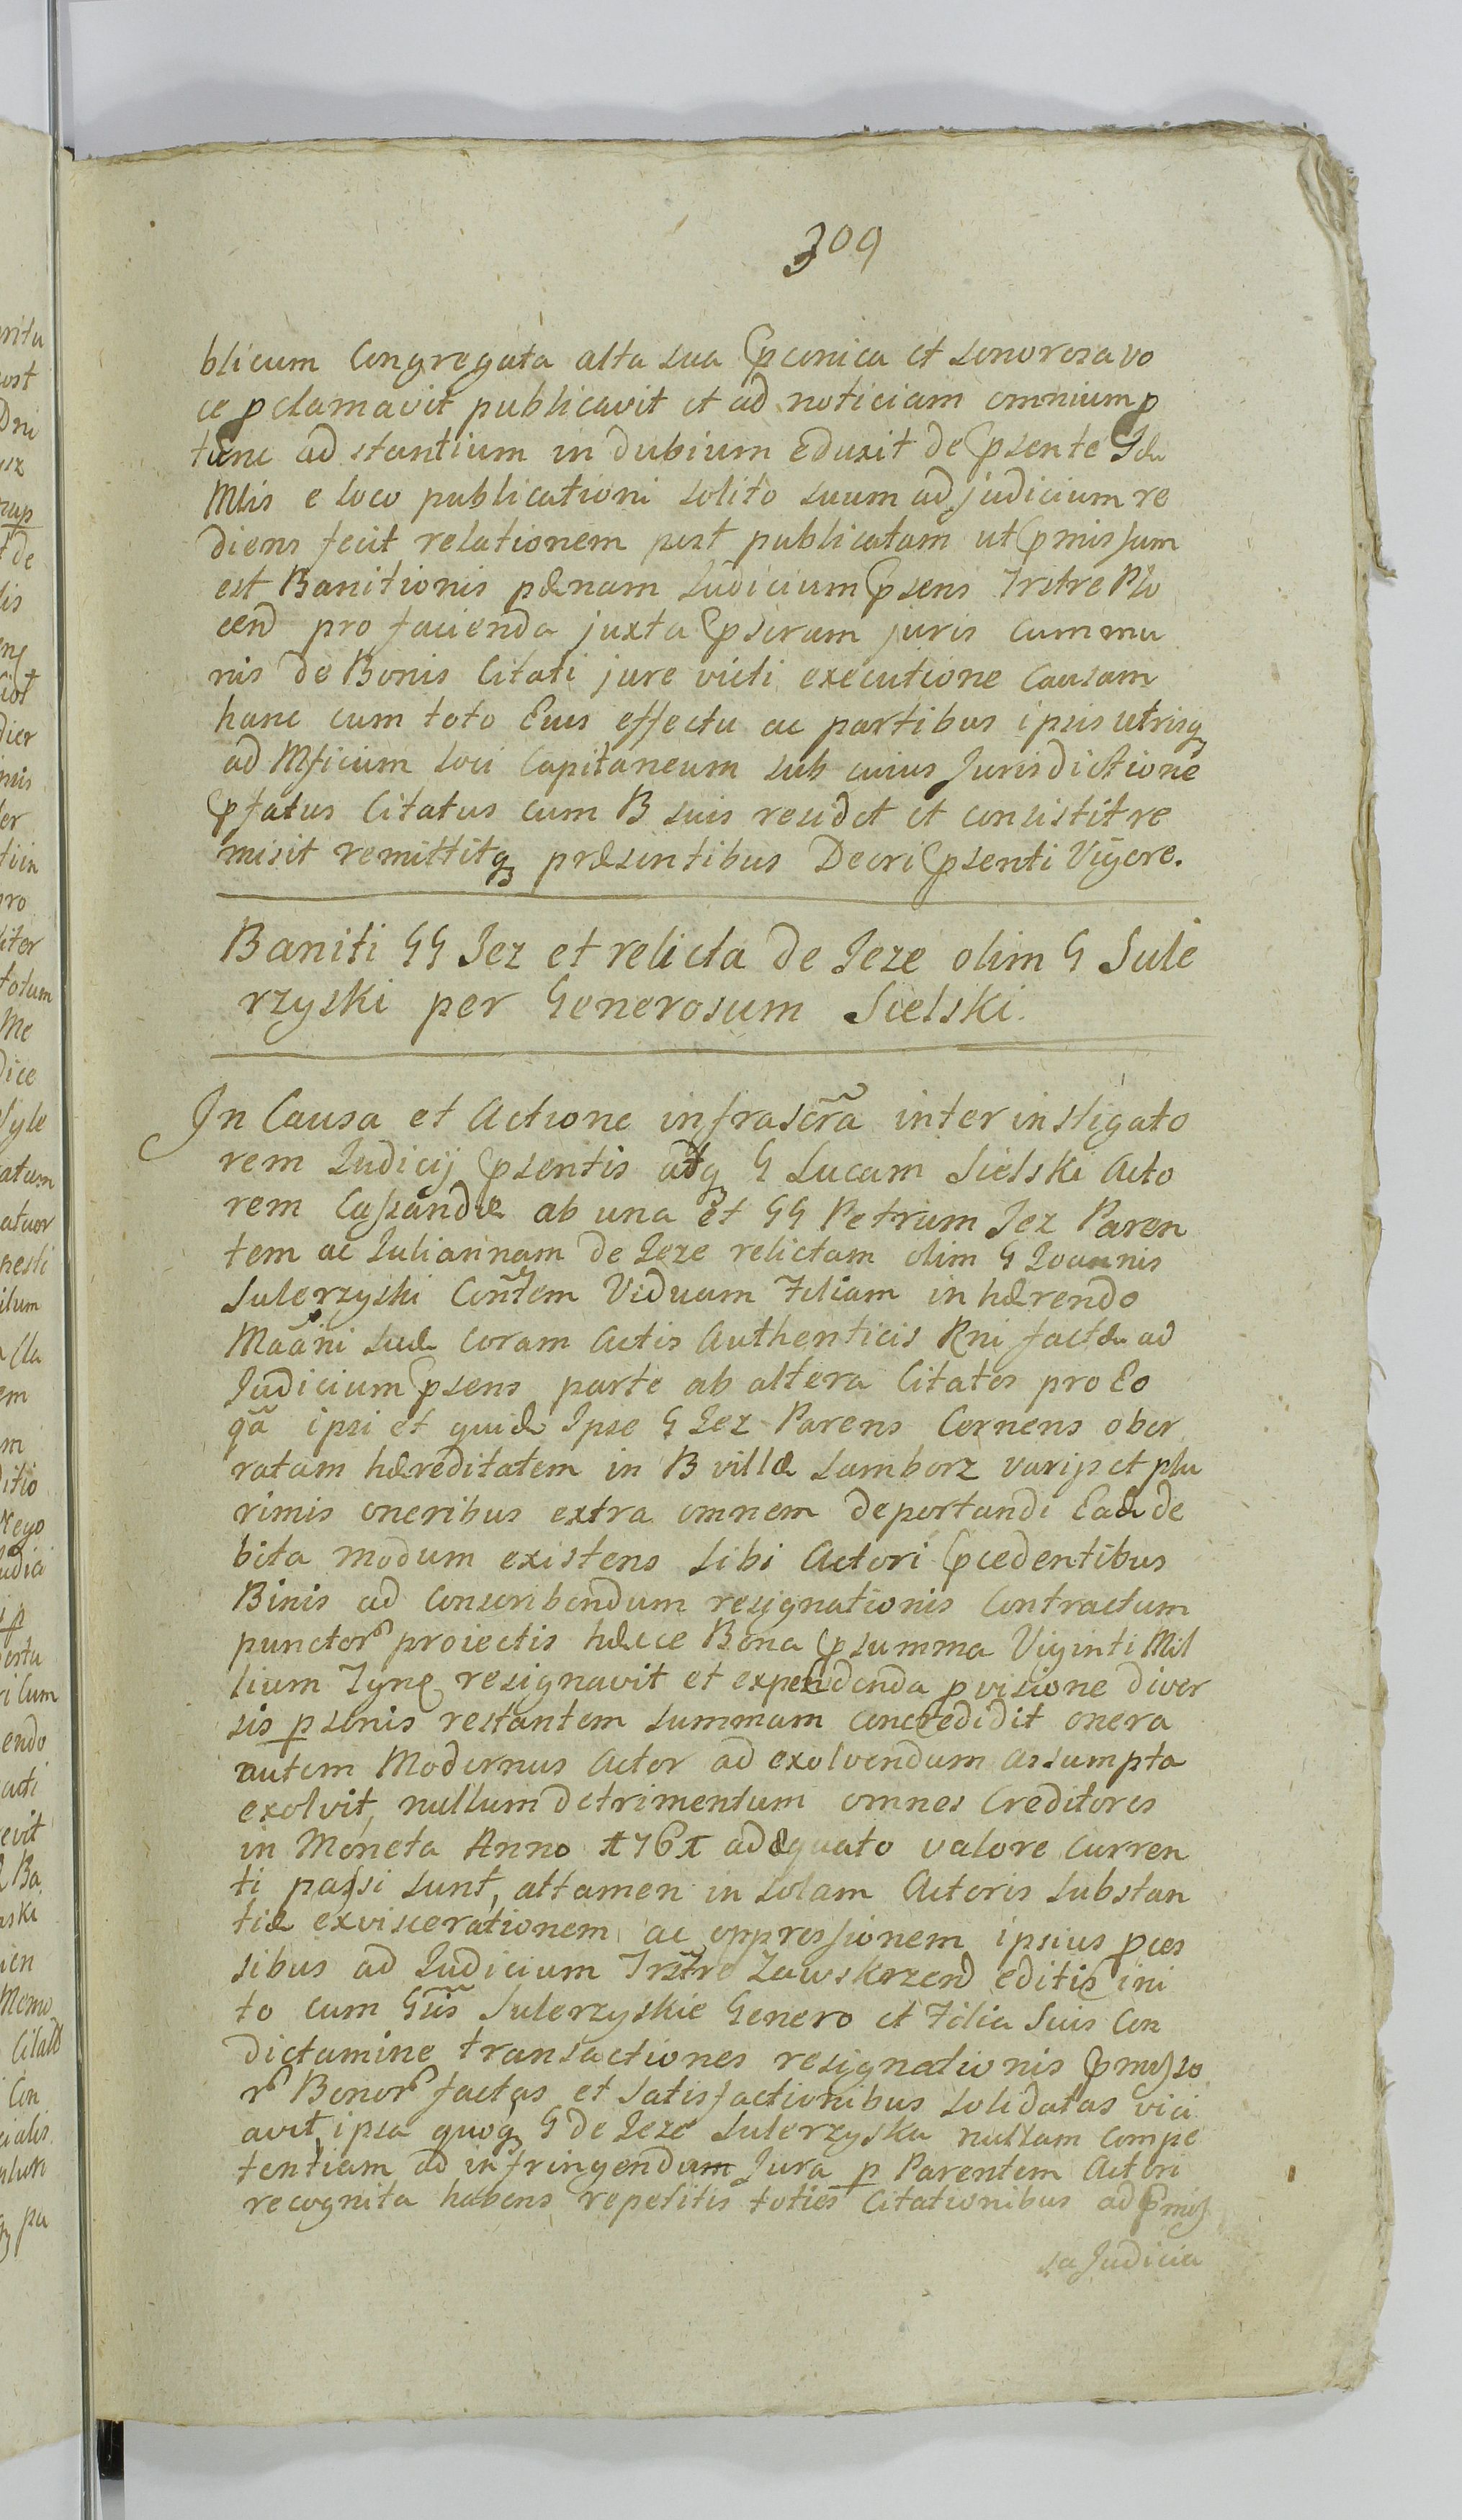 309
blicum Congregata alta sua pconica et sonorosa vo
ce pclamavit publicavit et ad noticiam omnium p
tunc ad stantium in dubium eduxit de psente Idu
Mlis e loco publicationi solito suum ad judicium re
diens fecit relationem post publicatam ut pmissum
est Banitionis pænam Judicium psens Trstre Plo
cend pro facienda juxta pscram juris commu
nis de Bonis Citati jure victi executione Causam
hanc cum toto Eius effectu ac partibus ipsis utrisq
ad Mficum loci Capitaneum sub cuius Jurisdictione
pfatus Citatus cum B suis residet et consistit re
misit remittitq præsentibus Decri psenti Vigore.
Baniti GG Jez et relicta de Jeze olim G Sule
rzyski per Generosum Sielski.
In Causa et Actione infrascra inter instigato
rem Judicij psentis atq G Lucam Sielski Acto
rem Cassandæ ab una et GG Petrum Jez Paren
tem ac Juliannam de Jeze relictam olim G Joannis
Sulerzyski Contem Viduam Filiam in hærendo
Maani suæ coram Actis Authenticis Rni factæ ad
Judicium psens parte ab altera Citatos pro Eo
qa ipsi et quidæ Ipse G Jez Parens Cernens ober
ratam hæreditatem in B villæ Samborz varijs et plu
rimis oneribus extra omnem deportandi Eadæ de
bita modum existens sibi Actori pcedentibus
Binis ad Conscribendum resignationis Contractum
punctor proiectis hæcce Bona p summa Viginti Mil
lium Tynf resignavit et expendenda pvisione diver
sis psonis restantem summam concredidit onera
autem Modernus Actor ad exolvendum assumpta
exolvit, nullum detrimentum omnes Creditores
in Moneta Anno 1761 adæquato valore curren
ti passi sunt, attamen in solam Actoris substan
tiæ exviscerationem ac oppressionem ipsius pces
sibus ad Judicium Trstre Zawskrzend editis ini
to cum Gis Sulerzyskie Genero et Filia suis Con
dictamine transactiones resignationis pmisso
r Bonor factas et satisfactionibus solidatas vici
avit, ipsa quoq G de Jeze Sulerzyska nullam compe
tentiam ad infringendum Jura p Parentem Actori
recognita habens repetitis toties Citationibus ad pmis
sa Judicia